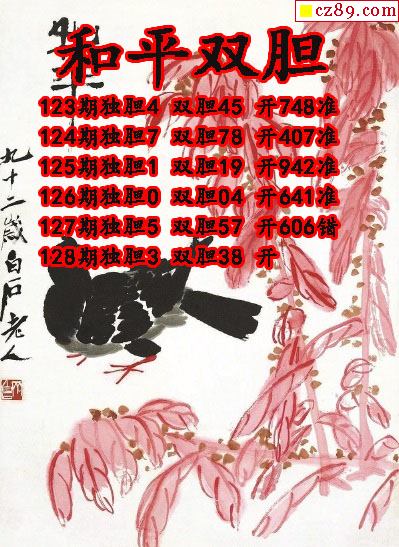 cz89.com
和平双胆
123期独胆4 双胆45 开748准
124期独胆7 双胆78 开407准
125期独胆1 双胆19 开942准
126期独胆0 双胆04 开641准
127期独胆5 双胆57 开606错
128期独胆3 双胆38 开
九十二岁白石老人